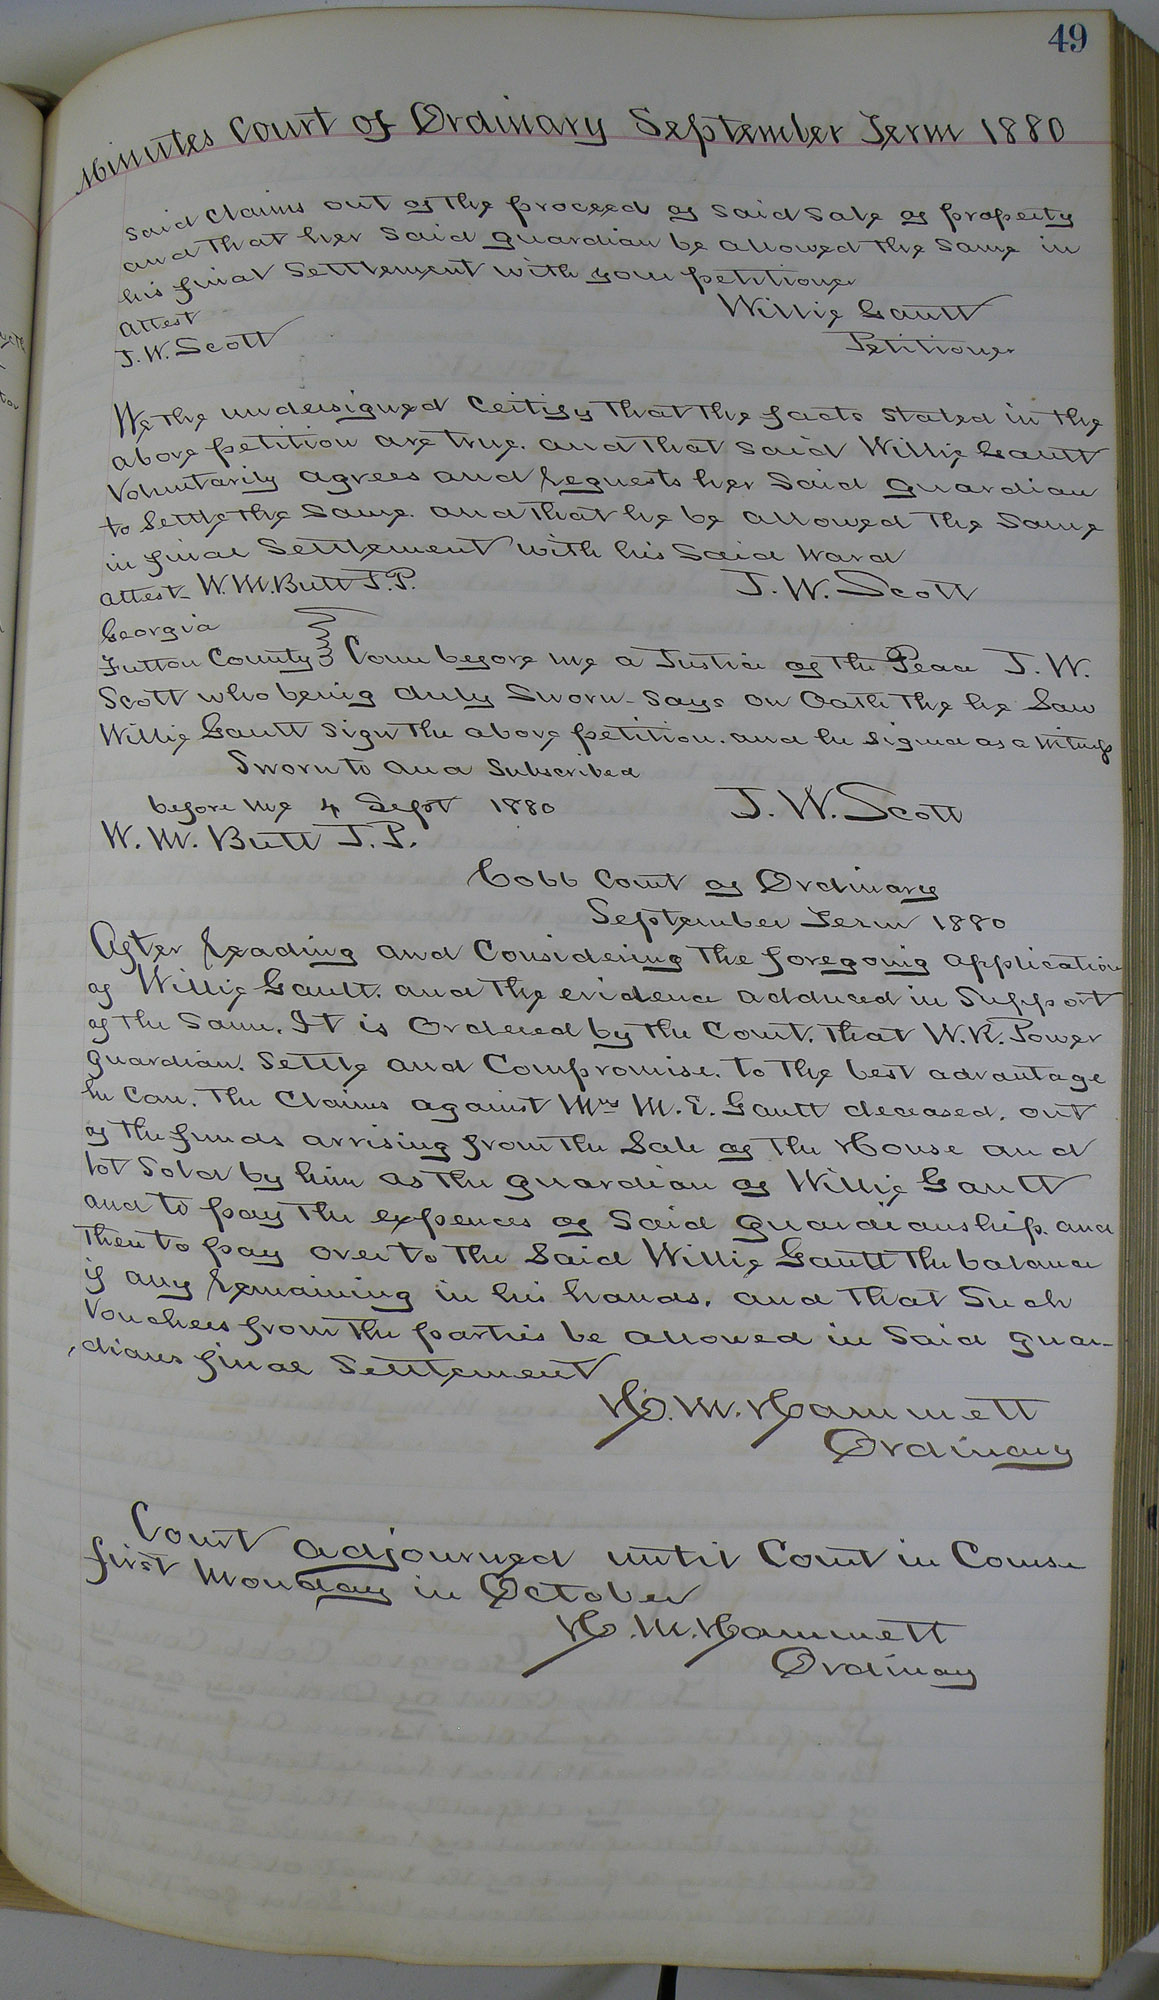 49
Minutes Court of Ordinary September Term 1880
said Claims out of the proceed of said sale of property
and that her said guardian be allowed the same in
his final Settlement with your petitioner
Willie Gautt
Attest
J. W. Scott
Petitioner
We the undersigned Certify that the facts stated in the
above petition are true. and that said Willie Gautt
Voluntarily agrees and requests her said guardian
to Settle the same. and that he be allowed the same
in final Settlement with his said Ward
attest W. M. Butt J.P.
J. W. Scott
Georgia
Fulton County Com before me a Justice of the Peace J. W.
Scott who being duly Sworn says on Oath the he saw
Willie Gautt sign the above petition. and he signed as a witness
Sworn to and Subscribed
before me 4 Sept 1880
J. W. Scott
W. M. Butt J.P.
Cobb Court of Ordinary
September Term 1880
After reading and Considering the foregoing application
of Willie Gautt. and the evidence adduced in Support
of the same. It is Ordered by the Court. that W. R. Power
guardian. Settle and Compromise. to the best advantage
he can. the Claims against Mrs M. E. Gautt deceased. out
of the funds arrising from the Sale of the House and
lot Sold by him as the guardian of Willie Gautt
and to pay the expences of said guardianship. and
then to pay over to the said Willie Gautt the balance
if any remaining in his hands. and that Such
Vouchers from the parties be allowed in said guar-
,dians final Settlement
H. M. Hammett
Ordinary
Court adjourned until Court in Course
first Monday in October
H. M. Hammett
Ordinary